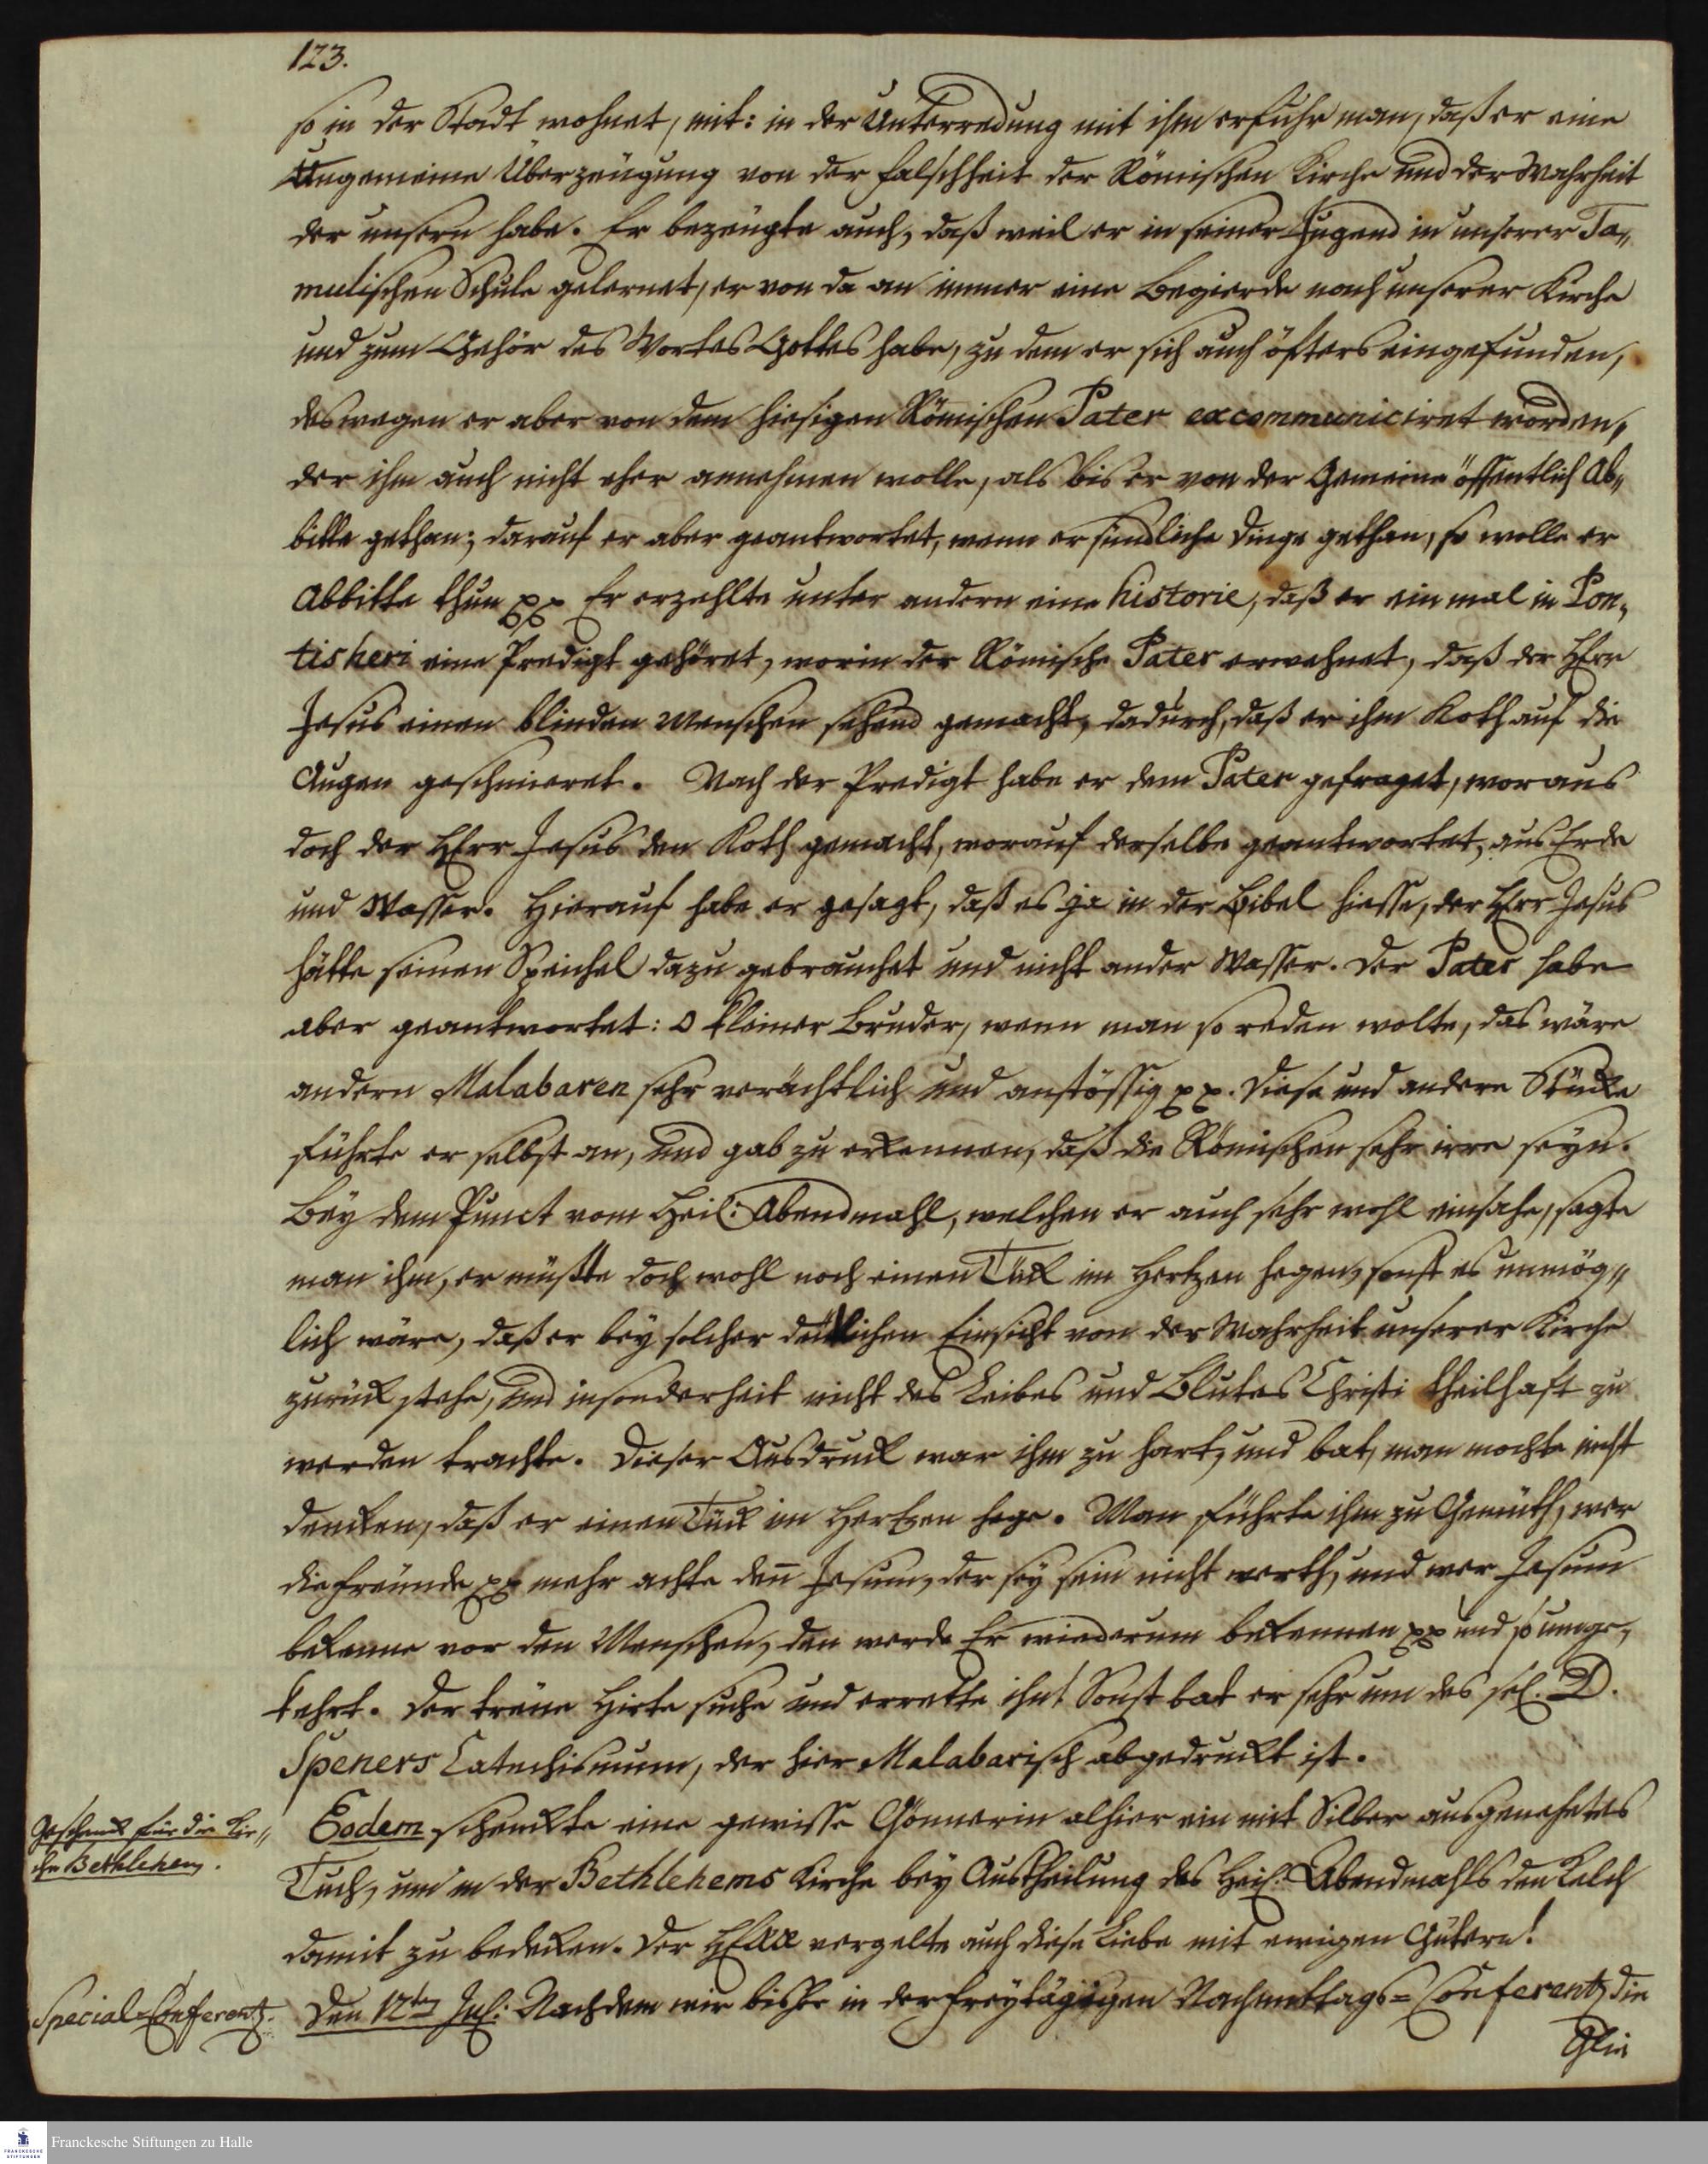 123.
so in der Stadt wohnet, mit: in der Unterredung mit ihm erfuhr man, daß er eine
Ungemeine Überzeugung von der Falschheit der Römischen Kirche und der Wahrheit
der unsern habe. Er bezeugte auch, daß weil er in seiner Jugend in unserer Ta„
mulischen Schule gelernet, er von da an immer eine Begierde nach unserer Kirche
und zum Gehör des Wortes Gottes habe, zu dem er sich auch öfters eingefunden,
deswegen er aber von dem hiesigen Römischen Pater excommuniciret worden,
der ihm auch nicht eher annehmen wolle, als bis er von der Gemeine öffentlich Ab„
bitte gethan; darauf er aber geantwortet, wenn er sündliche Dinge gethan, so wolle er
Abbitte thun pp Er erzehlte unter andern eine historie, daß er ein mal in Pon„
tischeri eine Predigt gehöret, worin der Römische Pater erwehnet, daß der HErr
Jesus einen blinden Menschen sehend gemacht, dadurch, daß er ihm Koth auf die
Augen geschmieret. Nach der Predigt habe er dem Pater gefraget, woraus
doch der HErr Jesus den Koth gemacht, worauf derselbe geantwortet, aus Erde
und Wasser. Hierauf habe er gesagt, daß es ja in der Bibel hiesse, der HErr Jesus
hätte seinen Speichel dazu gebrauchet und nicht ander Wasser. Der Pater habe
aber geantwortet: O kleiner Bruder, wenn man so reden wolte, das wäre
andern Malabaren sehr verächtlich und anstössig pp. Diese und andere Stücke
führte er selbst an, und gab zu erkennen, daß die Römischen sehr irre seyn.
Bey dem Punct vom Heil: Abendmahl, welchen er auch sehr wohl einsahe, sagte
man ihm, er müßte doch wohl noch einen Tück im Hertzen hegen, sonst es unmög„
lich wäre, daß er bey solcher deutlichen Einsicht von der Wahrheit unserer Kirche
zurück stehe, und insonderheit nicht des Leibes und Blutes Christi theilhaft zu
werden trachte. Dieser Ausdruck war ihm zu hart, und bat, man mochte nicht
dencken, daß er einen Tück im Hertzen hege. Man führte ihm zu Gemüth, wer
die Freunde pp mehr achte deñ Jesum, der sey sein nicht werth, und wer Jesum
bekenne vor den Menschen, den werde Er wiederum bekennen pp und so umge„
kehrt. Der treue Hirte suche und errette ihn! Sonst bat er sehr um des sel. D.
Speners Catechismum, der hier Malabarisch abgedruckt ist.
Geschenck für die Kir„
che Bethlehem.
Eodem schenckte eine gewisse Gönnerin alhier ein mit Silber ausgenehetes
Tuch, um in der Bethlehems Kirche bey Austheilung des Heil. Abendmahls den Kelch
damit zu bedecken. Der HErr vergelte auch diese Liebe mit ewigen Gütern!
Special-Conferentz.
Den 12ten Jul: Nachdem wir bisher in der Freytägigen Nachmittags-Conferentz die
Glie